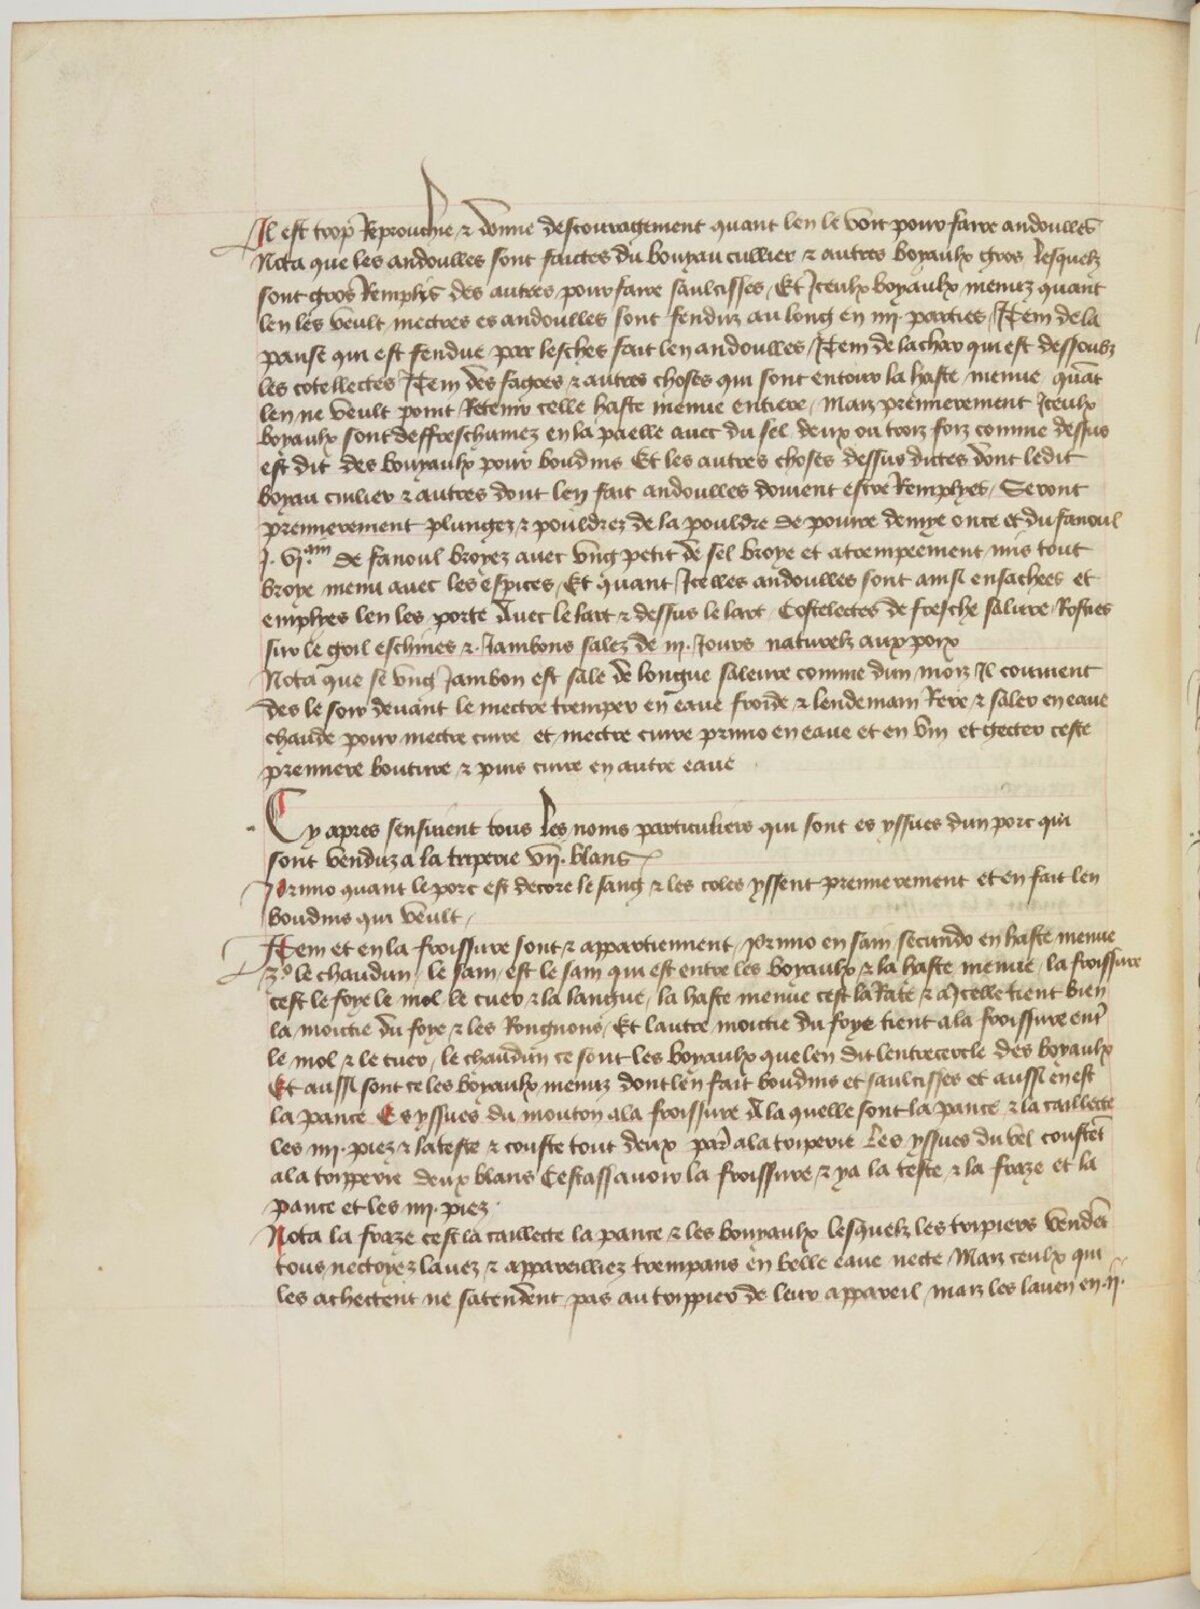 Il est trop Reprouchie & donne descouragement quant len le voit pour faire andoulles
Nota que les andoulles sont faictes du bouyau cullier & autres boyaulx gros lesquelz
sont gros Remplis des autres pour faire saulcisses Et Iceulx boyaulx menuz quant
len les veult mectres es andoulles sont fenduz au long en iiij parties Item de la
panse qui est fendue par lesches fait len andoulles Item de la char qui est dessoubz
les cotellectes Item des fagoes & autres choses qui sont entour la haste menue quāt
len ne veult point Retenir celle haste menue entiere Maiz premierement Iceulx
boyaulx sont deffreschumez en la paelle avec du sel deux ou troiz foiz comme dessus
est dit des bouyaulx pour boudins Et les autres choses dessus dictes dont ledit
boyau cuilier & autres dont len fait andoulles doivent estre Remplyes Seront
premierement plungez & pouldrez de la pouldre de poivre demye once et du fanoul
j. vj.am de fanoul broyez avec ung petit de sel broye et atrempeement mis tout
broye menu avec les espices Et quant Icelles andoulles sont ainsi ensachees et
emplyes len les porte Avec le lart & dessus le lart Costelectes de fresche salure Rosties
sur le greil eschines & Jambons salez de iij. Jours naturelz aux poix
Nota que se ung Jambon est sale de longue saleure comme dun moiz Il convient
des le soir devant le mectre tremper en eaue froide & lendemain Rere & saler en eaue
chaude pour mectre cuire et mectre cuire primo en eaue et en vin et gecter ceste
premiere bouture & puis cuire en autre eaue
Cy apres sensuivent tous les noms particuliers qui sont es yssues dun porc qui
sont venduz a la triperie vij. blans
Primo quant le porc est decore le sang & les coles yssent premierement et en fait len
boudins qui veult
Item et en la froissure sont & appartiennent primo en sain secundo en haste menue
3º le chaudun le sain est le sain qui est entre les boyaulx & la haste menue la froissure
cest le foye le mol le cuer & la langue la haste menue cest la Rate & a Icelle tient bien
la moictie du foye & les Rongnons Et lautre moictie du foye tient a la froissure entr̄
le mol & le cuer le chaudun ce sont les boyaulx que len dit lentrecercle des boyaulx
Et aussi sont ce les boyaulx menuz dont len fait boudins et saulcisses et aussi en est
la pance Es yssues du mouton a la froissure A la quelle sont la pance & la caillecte
les iiij. piez & la teste & couste tout deux par̄ a la triperie Les yssues du bel coustēt
a la tripperie deux blans Cestassavoir la froissure & ya la teste & la fraze et la
pance et les iiij. piez
Nota la fraze cest la caillecte la pance & les bouyaulx lesquelz les tripiers vendēt
tous nectoyez lavez & appareilliez trempans en belle eaue necte Maiz ceulx qui
les achectent ne satendent pas au trippier de leur appareil maiz les laven en .ij.